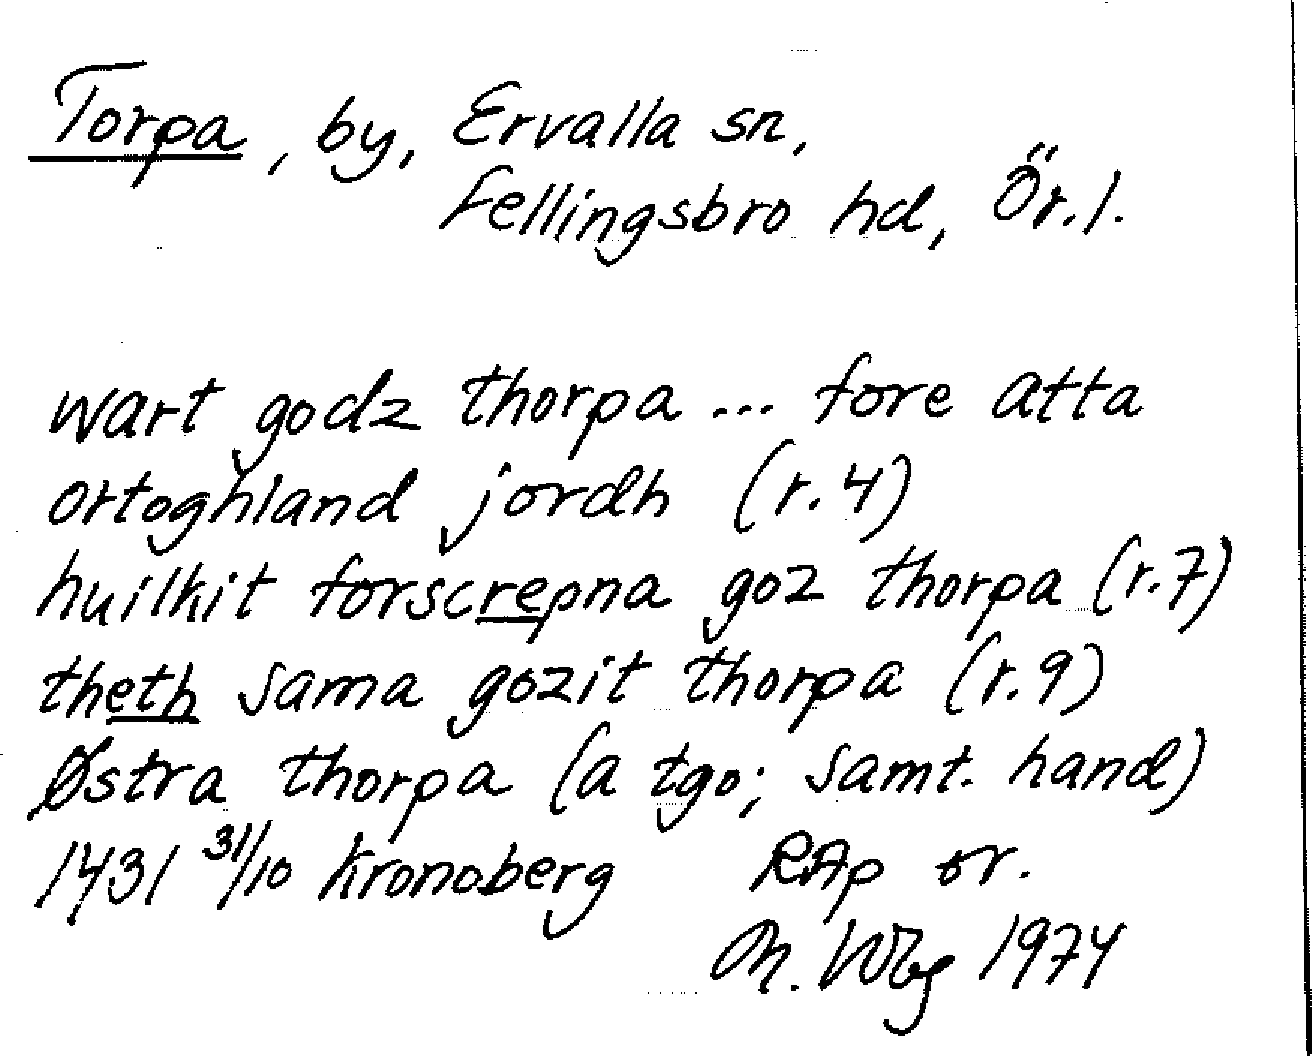 Torpa, by, Ervalla sn,
Fellingsbro hd, Ör.l.
wart godz thorpa ... fore atta
ortoghland jordh (r.4)
huilkit forscrepna goz thorpa (r.7)
theth sama gozit thorpa (r.9)
Østra thorpa (a tgo; samt. hand)
1431 31/10 Kronoberg RAp or.
M. Wbg 1974